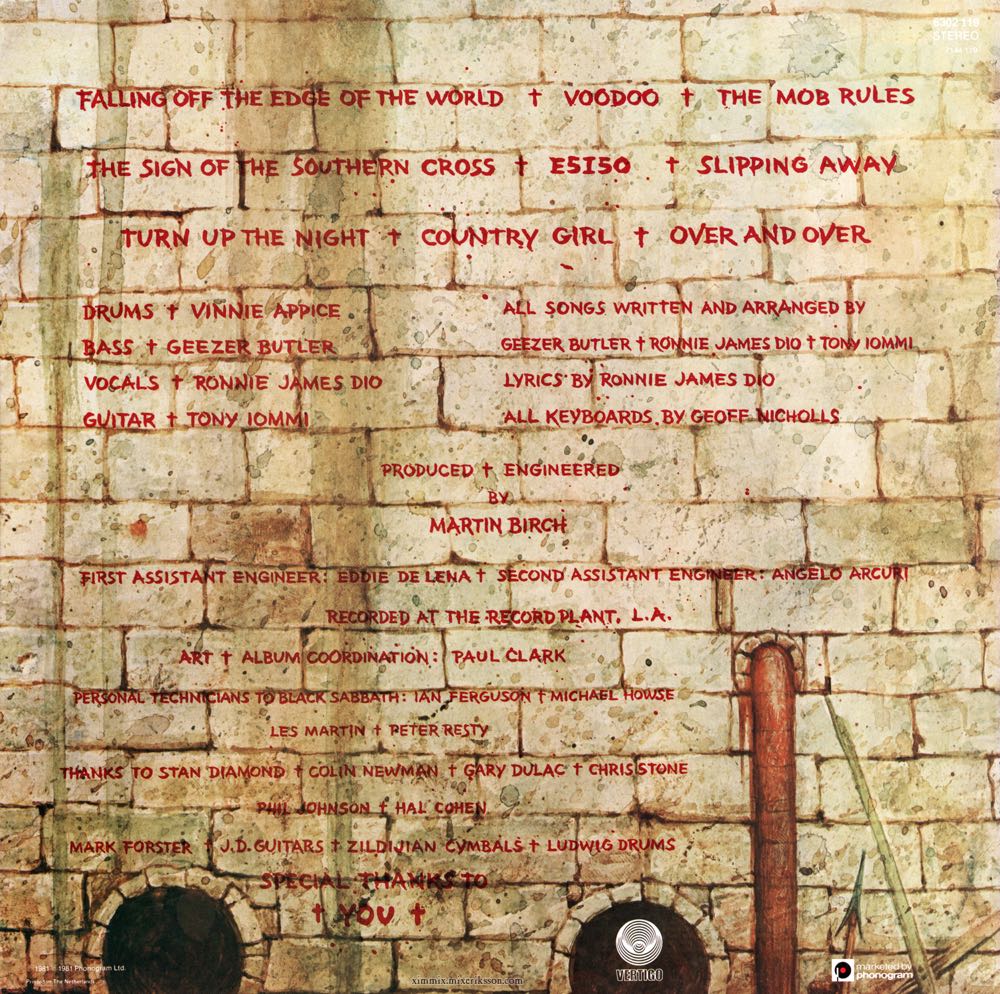 6302 119
STEREO
7144 119
FALLING OFF THE EDGE OF THE WORLD † VOODOO † THE MOB RULES
THE SIGN OF THE SOUTHERN CROSS † E5150 † SLIPPING AWAY
TURN UP THE NIGHT † COUNTRY GIRL † OVER AND OVER
DRUMS † VINNIE APPICE
BASS † GEEZER BUTLER
VOCALS † RONNIE JAMES DIO
GUITAR † TONY IOMMI
ALL SONGS WRITTEN AND ARRANGED BY
GEEZER BUTLER † RONNIE JAMES DIO † TONY IOMMI
LYRICS BY RONNIE JAMES DIO
ALL KEYBOARDS BY GEOFF NICHOLLS
PRODUCED † ENGINEERED
BY
MARTIN BIRCH
FIRST ASSISTANT ENGINEER: EDDIE DE LENA † SECOND ASSISTANT ENGINEER: ANGELO ARCURI
RECORDED AT THE RECORD PLANT, L.A.
ART † ALBUM COORDINATION: PAUL CLARK
PERSONAL TECHNICIANS TO BLACK SABBATH: IAN FERGUSON † MICHAEL HOWSE
LES MARTIN † PETER RESTY
THANKS TO STAN DIAMOND † COLIN NEWMAN † GARY DULAC † CHRIS STONE
PHIL JOHNSON † HAL COHEN
MARK FORSTER † J.D. GUITARS † ZILDIJIAN CYMBALS † LUDWIG DRUMS
SPECIAL THANKS TO
† YOU †
VERTIGO
marketed by
phonogram
1981 ℗ 1981 Phonogram Ltd.
Printed in The Netherlands
ximmix.mixeriksson.com